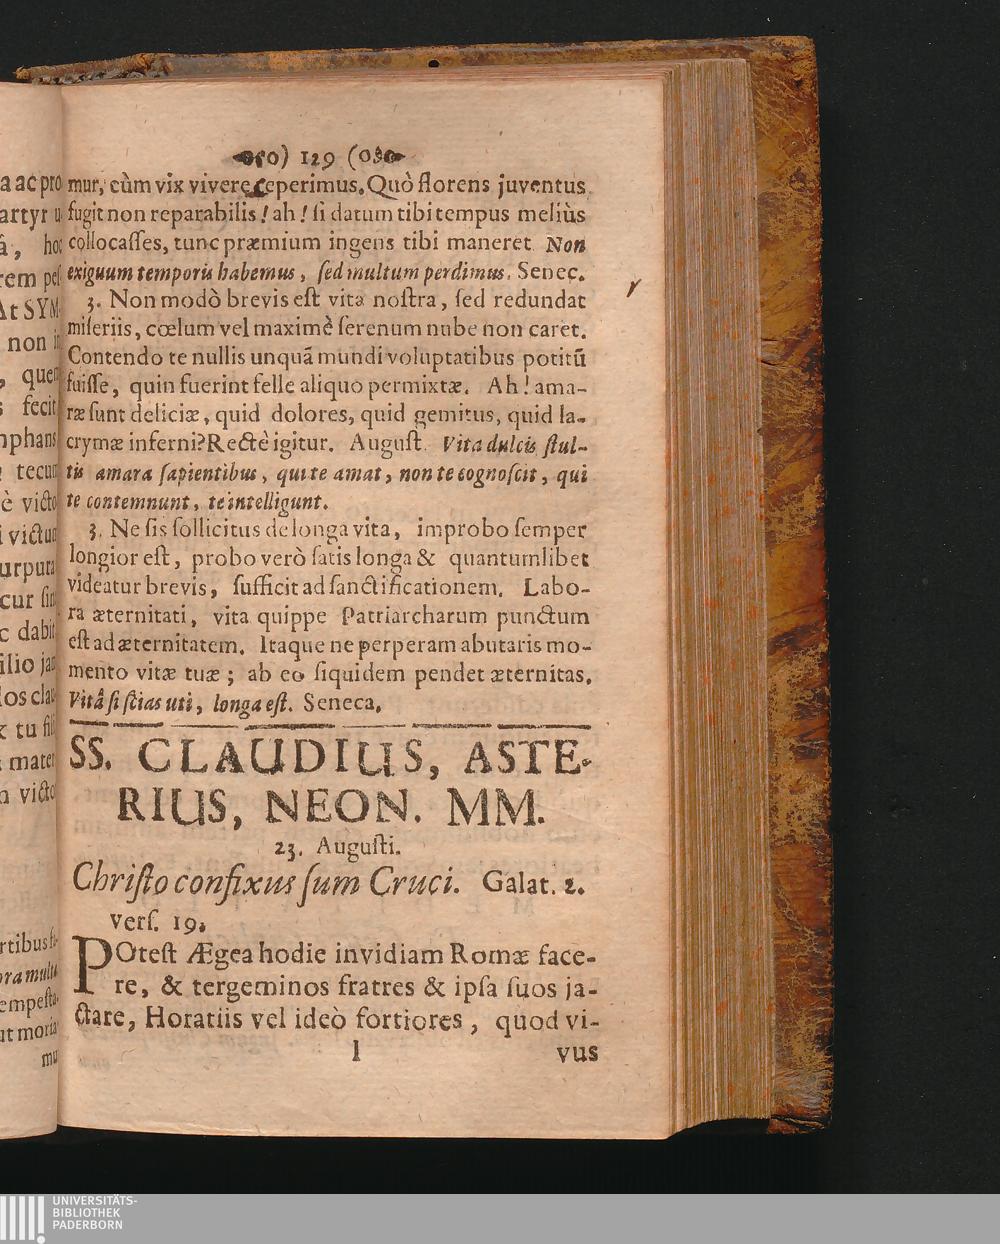 a ac pro
artyr u
â, hoc
rem pes
At SYM
non in
, quem
s fecit
mphans
tecum
è victo
i victum
urpura
cur sin
c dabit
ilio jam
los clau
x tu fili
mater
n victo
rtibus
ora mulu
empesta
ut moria
mu
0) 129 (0
mur, cùm vix vivere cœperimus. Quò florens juventus
fugit non reparabilis! ah! ſi datum tibi tempus meliùs
collocaſſes, tunc præmium ingens tibi maneret Non
exiguum temporis habemus, ſed multum perdimus. Senec.
3. Non modò brevis eſt vita noſtra, ſed redundat
miſeriis, cœlum vel maximè ſerenum nube non caret.
Contendo te nullis unquã mundi voluptatibus potitũ
fuiſſe, quin fuerint felle aliquo permixtæ. Ah! ama-
ræ ſunt deliciæ, quid dolores, quid gemitus, quid la-
crymæ inferni? Rectè igitur. Auguſt. Vita dulcis ſtul-
tis amara ſapientibus, qui te amat, non te cognoſcit, qui
te contemnunt, te intelligunt.
3. Ne ſis ſollicitus de longa vita, improbo ſemper
longior eſt, probo verò ſatis longa & quantumlibet
videatur brevis, ſufficit ad ſanctificationem. Labo-
ra æternitati, vita quippe Patriarcharum punctum
eſt ad æternitatem. Itaque ne perperam abutaris mo-
mento vitæ tuæ; ab eo ſiquidem pendet æternitas.
Vitâ ſi ſcias uti, longa eſt. Seneca.
SS. CLAUDIUS, ASTE-
RIUS, NEON. MM.
23. Auguſti.
Chriſto confixus ſum Cruci. Galat. 2.
verſ. 19.
POteſt Ægea hodie invidiam Romæ face-
re, & tergeminos fratres & ipſa ſuos ja-
ctare, Horatiis vel ideò fortiores, quod vi-
I vus
UNIVERSITÄTS-
BIBLIOTHEK
PADERBORN